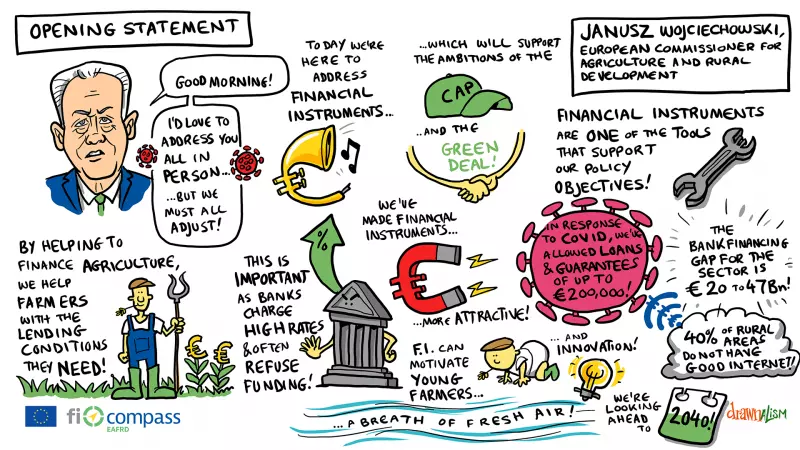 OPENING STATEMENT
GOOD MORNING!
I'D LOVE TO
ADDRESS YOU
ALL IN
PERSON...
...BUT WE
MUST ALL
ADJUST!
TODAY WE'RE
HERE TO
ADDRESS
FINANCIAL
INSTRUMENTS...
...WHICH WILL SUPPORT
THE AMBITIONS OF THE
CAP
...AND THE
GREEN
DEAL!
JANUSZ WOJCIECHOWSKI,
EUROPEAN COMMISSIONER FOR
AGRICULTURE AND RURAL
DEVELOPMENT
FINANCIAL INSTRUMENTS
ARE ONE OF THE TOOLS
THAT SUPPORT
OUR POLICY
OBJECTIVES!
BY HELPING TO
FINANCE AGRICULTURE,
WE HELP
FARMERS
WITH THE
LENDING
CONDITIONS
THEY NEED!
€ €
THIS IS
IMPORTANT
AS BANKS
CHARGE
HIGH RATES
& OFTEN
REFUSE
FUNDING!
%
WE'VE
MADE FINANCIAL
INSTRUMENTS...
...MORE ATTRACTIVE!
IN RESPONSE
TO COVID, WE'VE
ALLOWED LOANS
& GUARANTEES
OF UP TO
€200,000!
THE
BANK FINANCING
GAP FOR THE
SECTOR IS
€20 TO 47Bn!
F.I. CAN
MOTIVATE
YOUNG
FARMERS...
...AND
INNOVATION!
40% OF RURAL
AREAS
DO NOT HAVE
GOOD INTERNET!
...A BREATH OF FRESH AIR!
WE'RE
LOOKING
AHEAD TO
2040!
fi compass
EAFRD
drawnalism